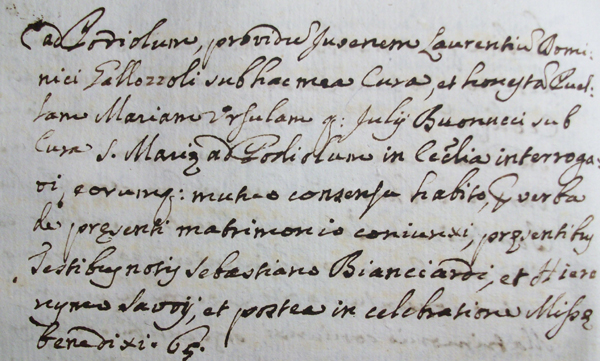 ad Podiolum, providũ Juvenem Laurentiũ Domi:
nici Gallozzoli sub hac mea Cura, et honestã Puel:
lam Mariam Ursulam q: Julij Buonucci sub
Cura S. Marię ad Podiolum in Ecc̃lia interroga:
vi, eorumq: mutuo consensu habito, p verba
de pręsenti matrimonio coniunxi, pręsentibus
Testibus notis Sebastiano Bianciardi, et Hiero
nymo Savoij, et postea in celebratione Missę
benedixi. 65.